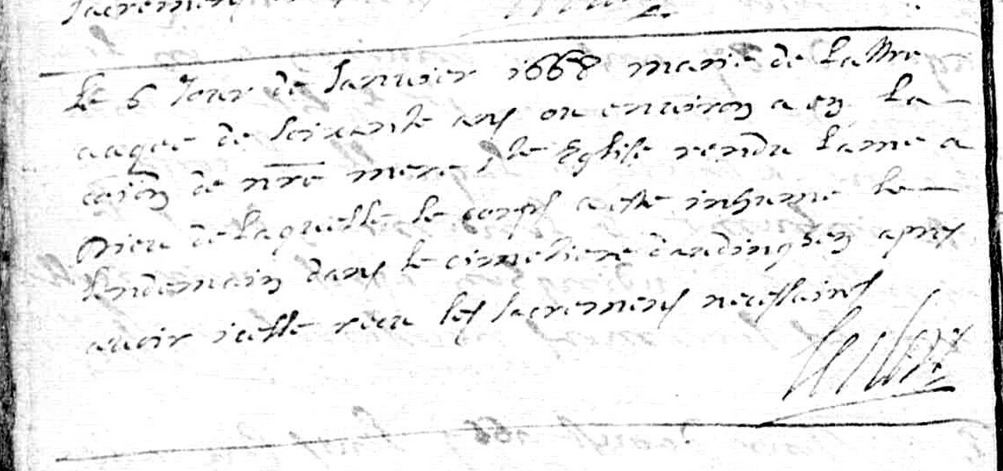 sacremens
Le 6 Jour de Janvier 1668 marie de Lattre
aagee de soixante ans ou environ a en la
coiōn de nrē mere Ste Eglise rendu l'ame a
Dieu de laquelle le corps a este inhumé le
lendemain dans le cimetiere daudingsen apres
avoir icelle receu les sacremens necessaires